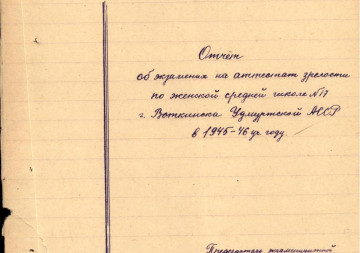 Отчёт
об экзаменах на аттестат зрелости
по женской средней школе №17
г. Воткинска Удмуртской АССР
в 1945-46 уч. году.
Председатель экзаменационной